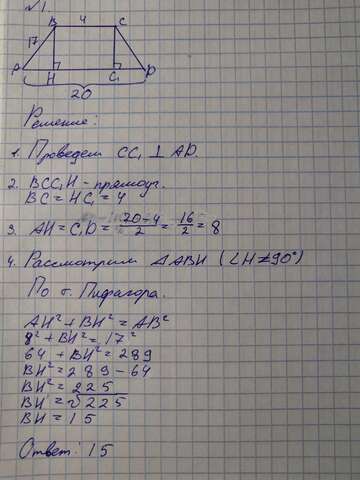 √1
B 4 C
17
A H C₁ D
20
Решение:
1. Проведем CC₁ ⊥ AD.
2. BCC₁H - прямоуг.
BC = HC₁ = 4
3. AH = C₁D = (20-4)/2 = 16/2 = 8
4. Рассмотрим ΔABH (∠H=90°)
По т. Пифагора.
AH² + BH² = AB²
8² + BH² = 17²
64 + BH² = 289
BH² = 289 - 64
BH² = 225
BH = √225
BH = 15
Ответ: 15